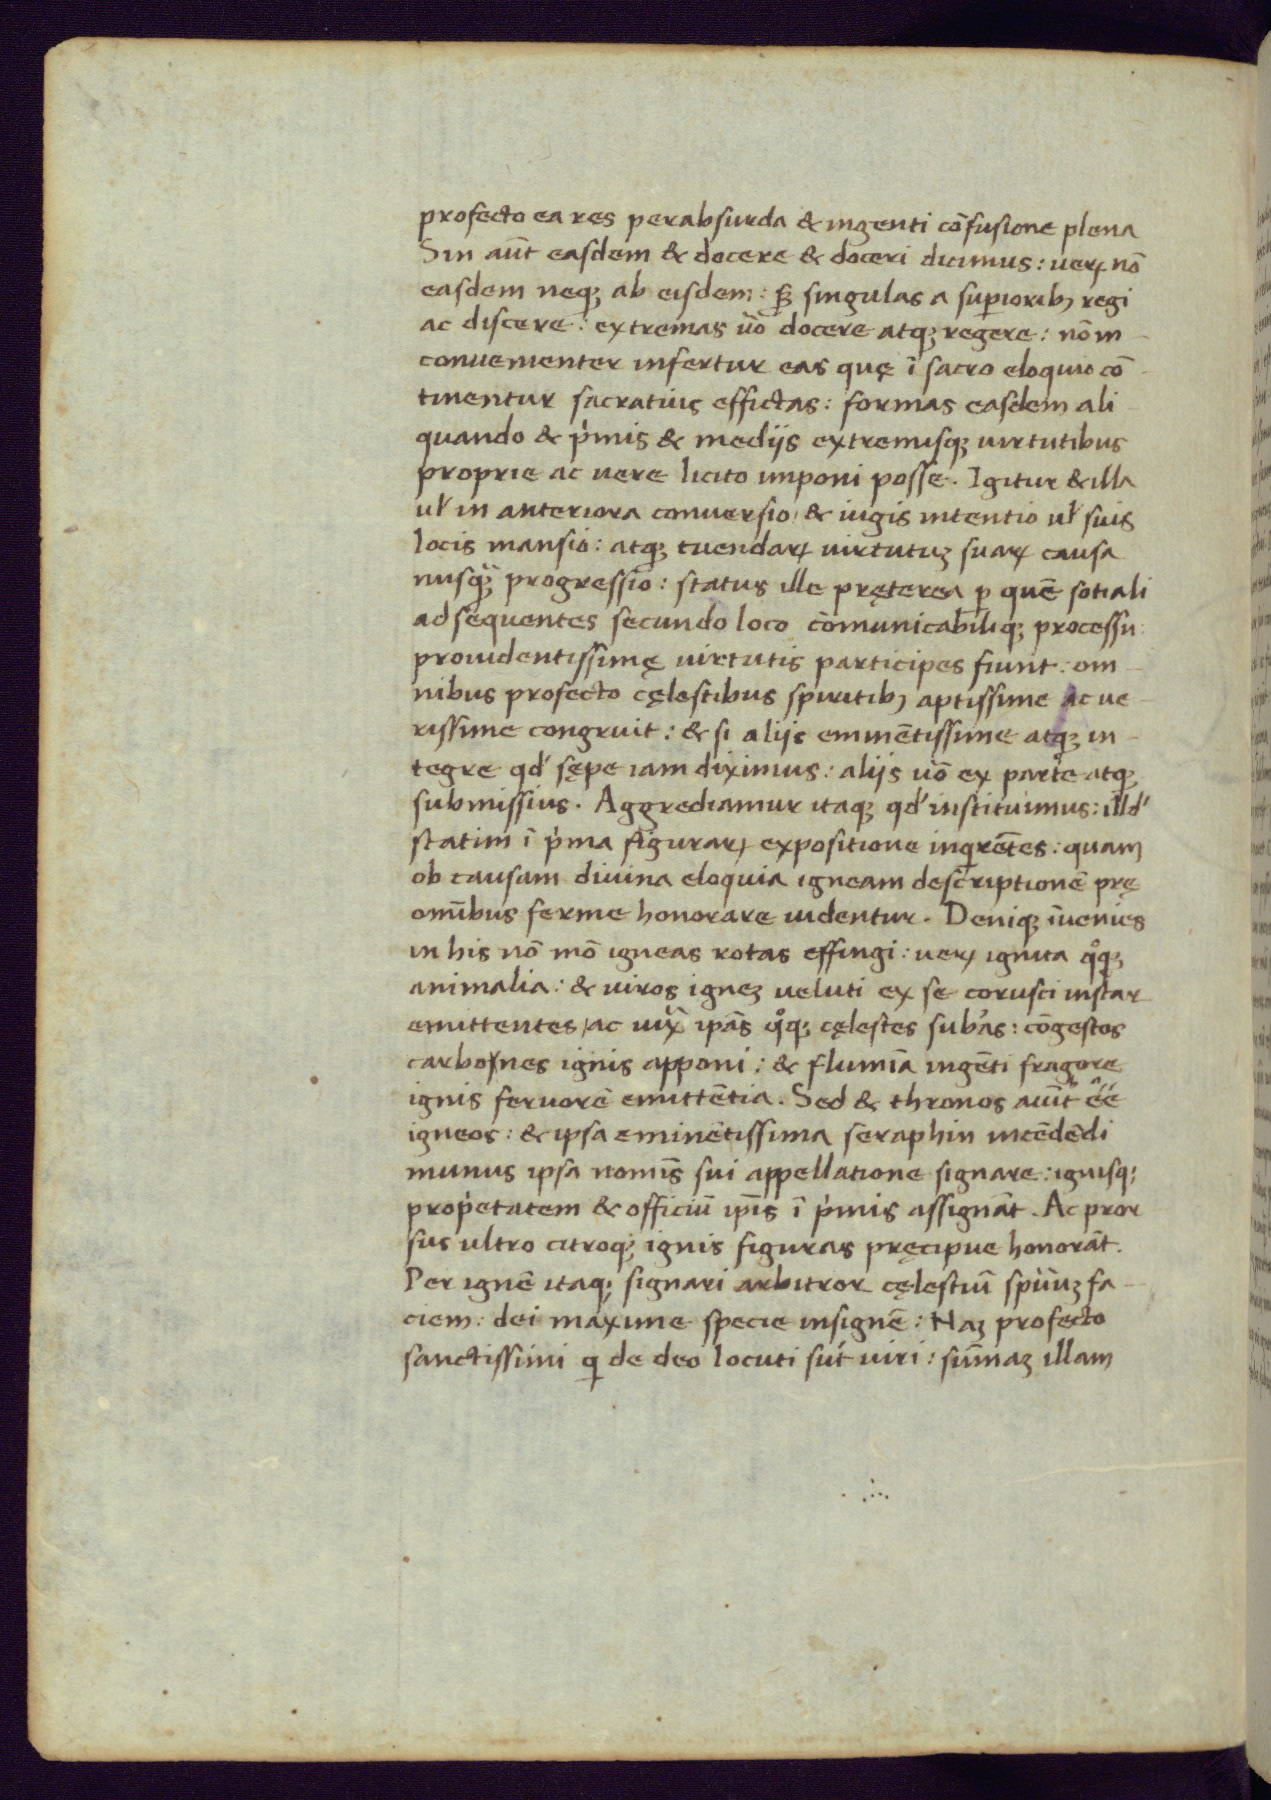 profecto ea res perabsurda & ingenti cōfusione plena
Sin aūt easdem & docere & doceri dicimus: ueꝝ nō
easdem neqꝫ ab eisdem: sꝫ singulas a supioribꝫ regi
ac discere: extremas u̅o docere atqꝫ regere: nō in
conuenienter infertur eas quę ī sacro eloquio cō
tinentur sacratius effictas: formas easdem ali
quando & p̍mis & medijs extremisqꝫ uirtutibus
proprie ac uere licito imponi posse. Igitur & illa
uł in anteriora conuersio / & iugis intentio uł suis
locis mansio: atqꝫ tuendaꝝ uirtutuꝫ suaꝝ causa
nusqꝫ̃ progressio: status ille pręterea ꝑ quē sotiali
ad sequentes secundo loco cōmunicabiliqꝫ processu
prouidentissimę uirtutis participes fiunt: om
nibus profecto cęlestibus spiritibꝫ aptissime ac ue
rissime congruit: & si alijs eminētissime atqꝫ in
tegre qd' sępe iam diximus: alijs u̅o ex parte atqꝫ
submissius. Aggrediamur itaqꝫ qd' instituimus: illd'
statim ī p̍ma figuraꝝ expositione inqrētes: quam
ob causam diuina eloquia igneam descriptionē prę
omībus ferme honorare uidentur. Deniqꝫ īuenies
in his nō mō igneas rotas effingi: ueꝝ ignita qͦqꝫ
animalia: & uiros igneꝫ ueluti ex se corusci instar
emittentes / ac ipās qͦqꝫ cęlestes sub'as: cōgestos
carbones ignis apponi: & flumīa ingēti fragore
ignis feruore emittētia. Sed & thronos ēē
igneos: & ipsa eminētissima seraphin incēdēdi
munus ipsa nomīs sui appellatione signare: ignisqꝫ
prop̍etatem & officiū ip̄is ī p̍mis assignāt. Ac pror
sus ultro citroqꝫ ignis figuras pręcipue honorāt.
Per ignē itaqꝫ signari arbitror cęlestiū sp̄uuꝫ fa
ciem: dei maxime specie insignē: Naꝫ profecto
sanctissimi q de deo locuti sūt uiri: sūmaꝫ illam